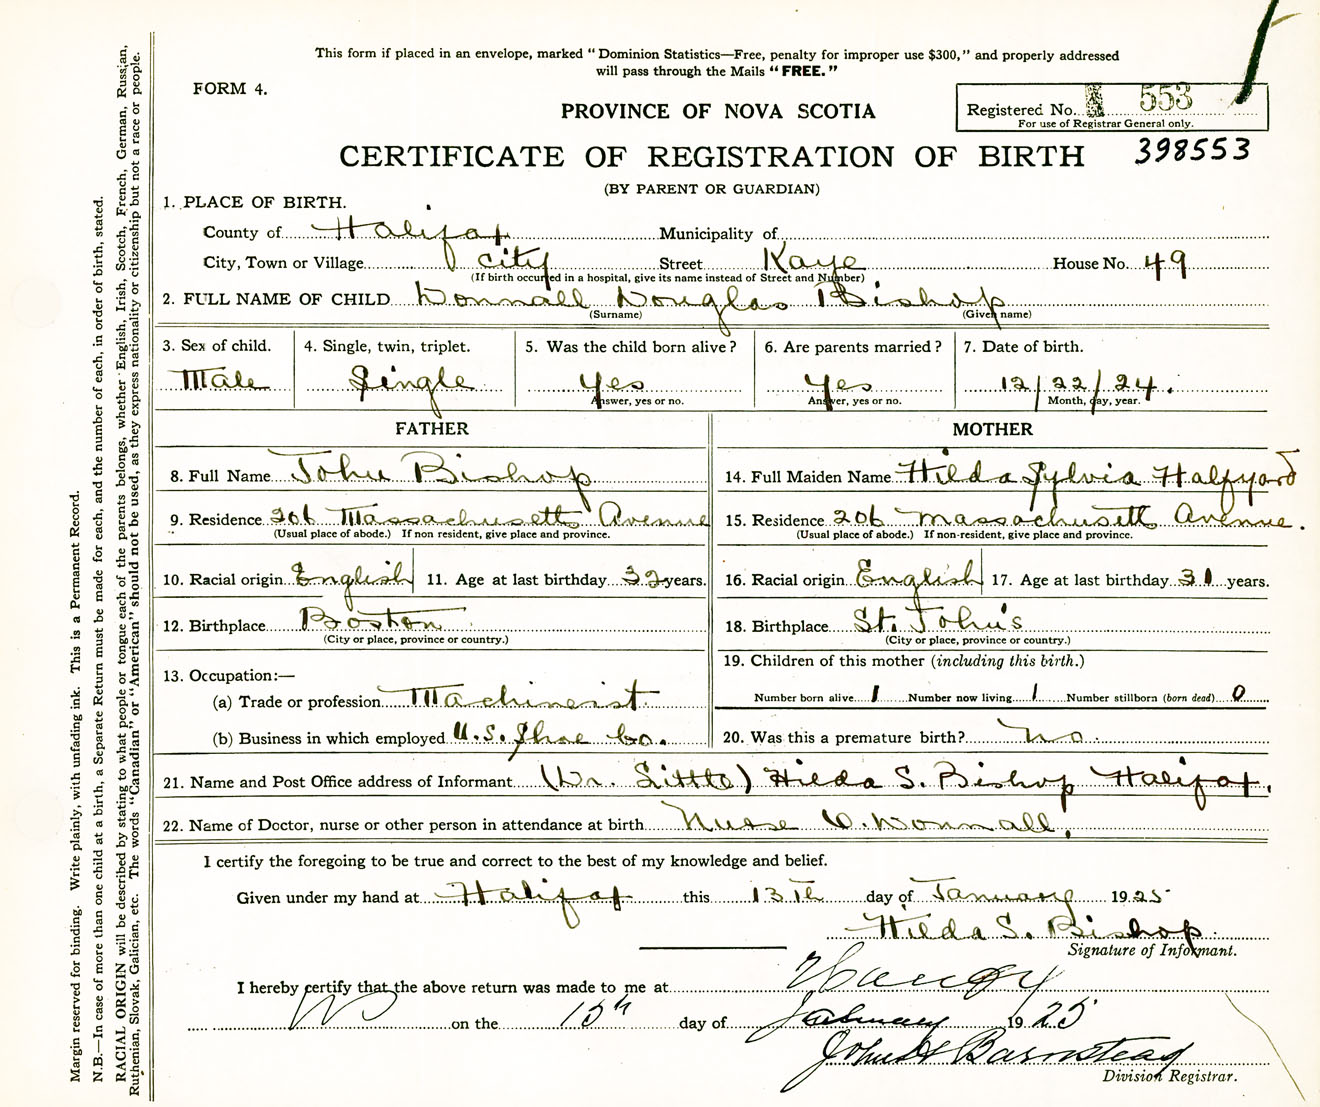 This form if placed in an envelope, marked "Dominion Statistics—Free, penalty for improper use $300," and properly addressed
will pass through the Mails "FREE."
FORM 4.
Registered No. A 553
For use of Registrar General only.
PROVINCE OF NOVA SCOTIA
CERTIFICATE OF REGISTRATION OF BIRTH 398553
(BY PARENT OR GUARDIAN)
1. PLACE OF BIRTH.
County of Halifax Municipality of
City, Town or Village City Street Kaye House No. 49
(If birth occurred in a hospital, give its name instead of Street and Number)
2. FULL NAME OF CHILD Donnall Douglas Bishop
(Surname) (Given name)
3. Sex of child. 4. Single, twin, triplet. 5. Was the child born alive? 6. Are parents married? 7. Date of birth.
Male Single Yes Yes 12/22/24.
Answer, yes or no. Answer, yes or no. Month, day, year.
FATHER
8. Full Name John Bishop
9. Residence 206 Massachusetts Avenue
(Usual place of abode.) If non resident, give place and province.
10. Racial origin English 11. Age at last birthday 32 years.
12. Birthplace Boston
(City or place, province or country.)
13. Occupation:—
(a) Trade or profession Machinerist
(b) Business in which employed U.S. Shoe Co.
MOTHER
14. Full Maiden Name Hilda Sylvia Halfyard
15. Residence 206 Massachusetts Avenue.
(Usual place of abode.) If non-resident, give place and province.
16. Racial origin English 17. Age at last birthday 31 years.
18. Birthplace St. John's
(City or place, province or country.)
19. Children of this mother (including this birth.)
Number born alive 1 Number now living 1 Number stillborn (born dead) 0
20. Was this a premature birth? No.
21. Name and Post Office address of Informant (Dr. Little) Hilda S. Bishop Halifax.
22. Name of Doctor, nurse or other person in attendance at birth Nurse O. Donnall.
I certify the foregoing to be true and correct to the best of my knowledge and belief.
Given under my hand at Halifax this 13th day of January 1925
Hilda S. Bishop.
Signature of Informant.
I hereby certify that the above return was made to me at
on the 15th day of February 1925
John H Barnstead
Division Registrar.
Margin reserved for binding. Write plainly, with unfading ink. This is a Permanent Record.
N.B.—In case of more than one child at a birth, a Separate Return must be made for each, and the number of each, in order of birth, stated.
RACIAL ORIGIN will be described by stating to what people or tongue each of the parents belongs, whether English, Irish, Scotch, French, German, Russian,
Ruthenian, Slovak, Galician, etc. The words "Canadian" or "American" should not be used, as they express nationality or citizenship but not a race or people.